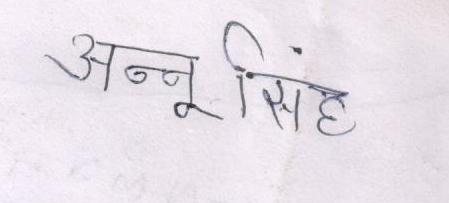 अन्नू सिंह